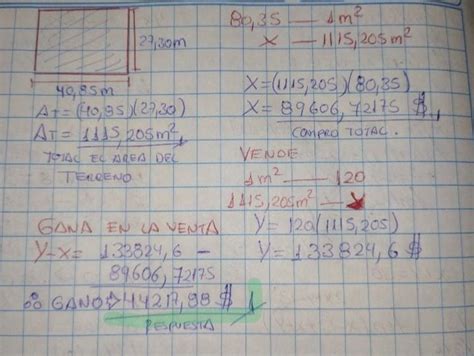 27,30m
40,85m
AT=(40,85)(27,30)
AT= 1115,205m²
TOTAL EL AREA DEL
TERRENO.
80,35 — 1m²
x — 1115,205m²
X=(1115,205)(80,35)
X= 89606,72175 $
COMPRO TOTAL.
VENDE
1m² — 120
1115,205m² — Y
Y= 120(1115,205)
Y= 133824,6 $
GANA EN LA VENTA
Y-X= 133824,6 -
89606,72175
∴ GANO 44217,88 $
RESPUESTA